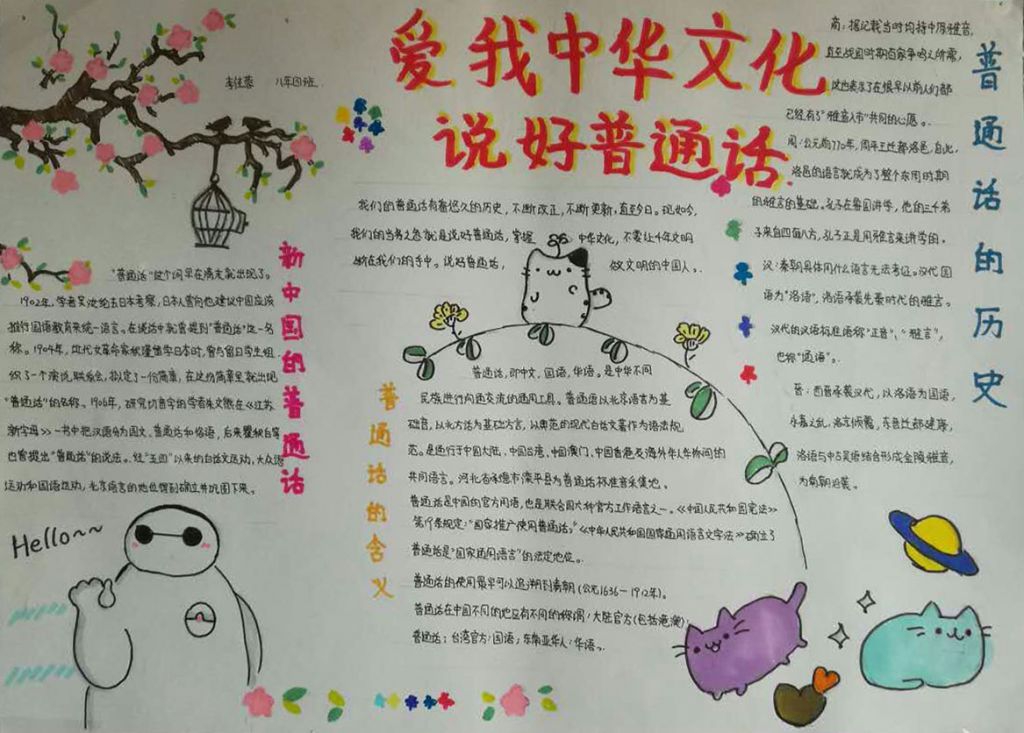 爱我中华文化
说好普通话
八年四班
我们的普通话有着悠久的历史，不断改正，不断更新，直至今日。现如今，
我们的当务之急就是说好普通话，掌握中华文化，不要让千年文明
断在我们的手中。说好普通话，做文明的中国人。
新中国的普通话
"普通话"这个词早在清末就出现了。
1902年，学者吴汝纶去日本考察，日本人曾向他建议中国应该
推行国语教育来统一语言。在谈话中就曾提到"普通话"这一名
称。1904年，近代女革命家秋瑾留学日本时，曾与留日学生组
织了一个演说联系会，拟定了一份简章，在这份简章里就出现
"普通话"的名称。1906年，研究切音字的学者朱文熊在《江苏
新字母》一书中把汉语分为国文、普通话和俗语，后来瞿秋白等
也曾提出"普通话"的说法。经"五四"以来的白话文运动，大众语
运动和国语运动，北京语音的地位得到确立并巩固下来。
Hello~~
普通话的含义
普通话，即中文，国语，华语。是中华不同
民族进行沟通交流的通用工具。普通话以北京语音为基
础音，以北方话为基础方言，以典范的现代白话文著作为语法规
范。是通行于中国大陆，中国台湾，中国澳门，中国香港及海外华人华侨间的
共同语言。河北省承德市滦平县为普通话标准音采集地。
普通话是中国的官方用语，也是联合国六种官方工作语言之一。《中国人民共和国宪法》
第19条规定："国家推广使用普通话。"《中华人民共和国国家通用语言文字法》确立了
普通话是"国家通用语言"的法定地位。
普通话的使用最早可以追溯到清朝（公元1636－1912年）。
普通话在中国不同的地区有不同的称谓：大陆官方（包括港澳）：
普通话；台湾官方：国语；东南亚华人：华语。
普通话的历史
商：据记载当时均持中原雅音，
直至战国时期百家争鸣之所需，
这也表示了在很早以前人们都
已经有了"雅音入市"共同的心愿。
周：公元前770年，周平王迁都洛邑，自此，
洛邑的语言就成为了整个东周时期
的雅言的基础。孔子在鲁国讲学，他的三千弟
子来自四面八方，孔子正是用雅言来讲学的。
汉：秦朝具体用什么语言无法考证。汉代国
语为"洛语"，洛语承袭先秦时代的雅言。
汉代的汉语标准语称"正音"、"雅言"，
也称"通语"。
晋：西晋承袭汉代，以洛语为国语，
永嘉之乱，洛京倾覆，东晋迁都建康，
洛语与中古吴语结合形成金陵雅音，
为南朝沿袭。